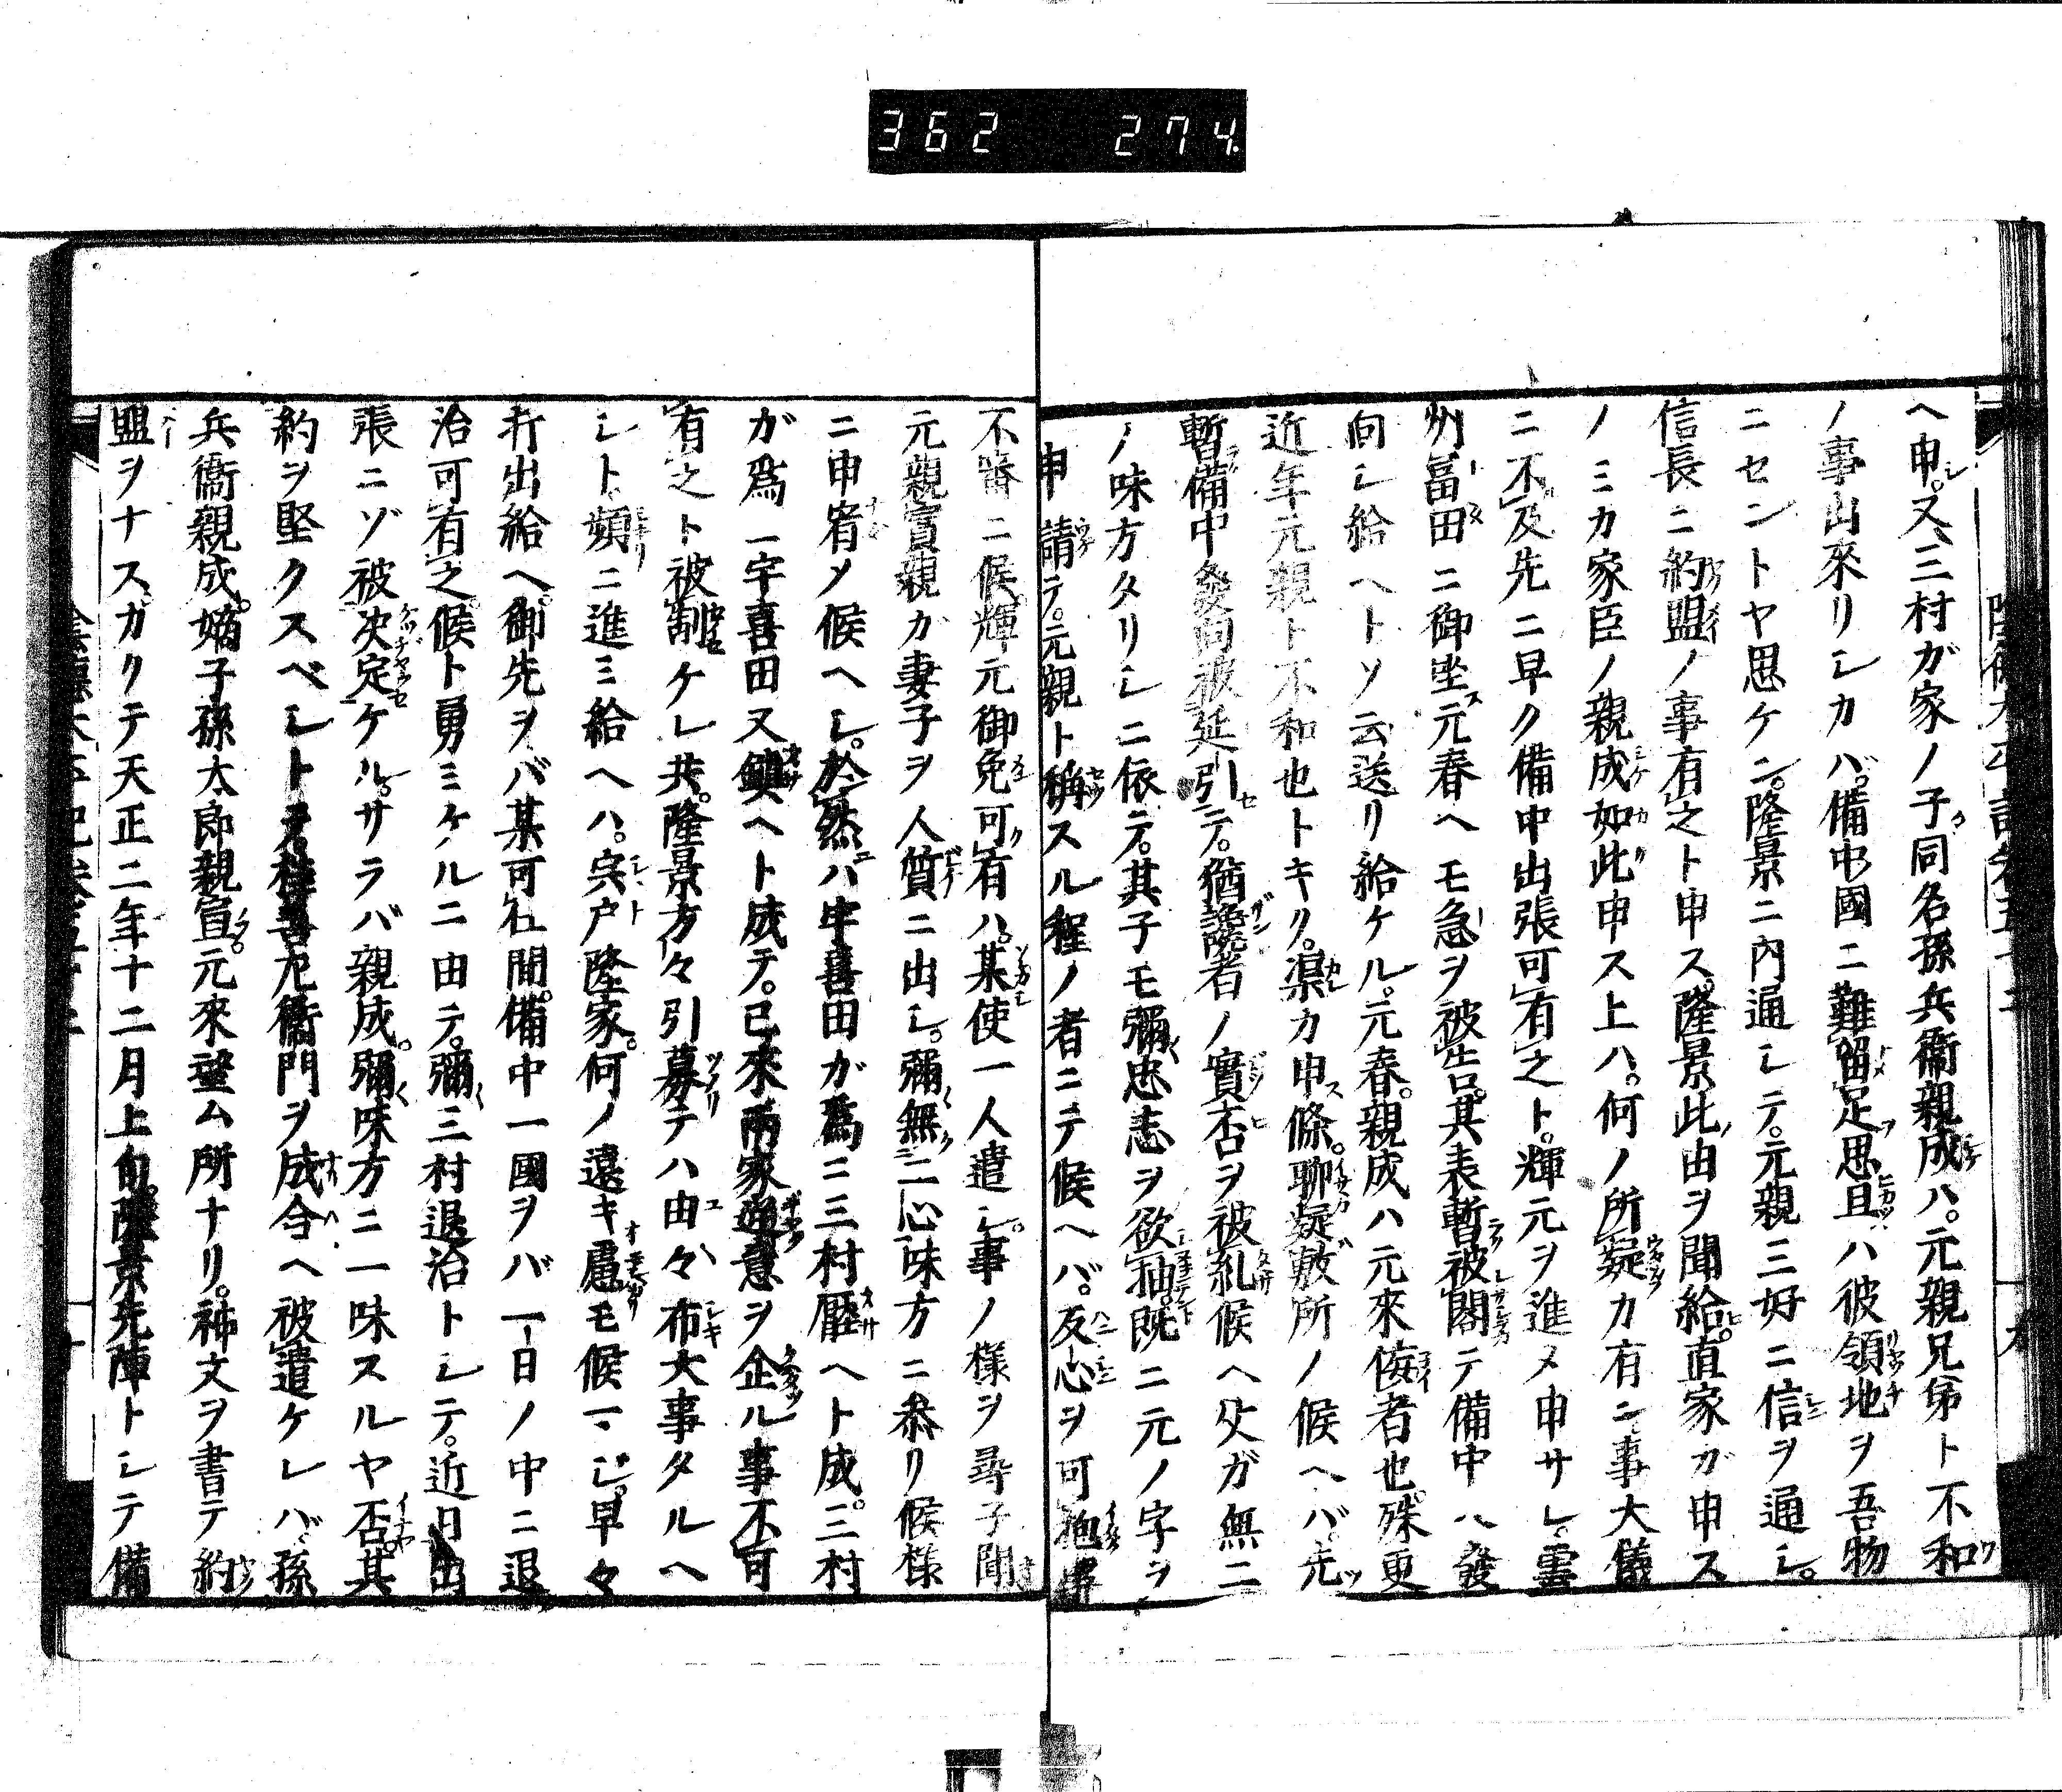 362 274.
ヘ申シ。又三村ガ家ノ子同名孫兵衞親成ハ。元親兄弟ト不和
ノ事出來リシカバ。備中國ニ難留足思且ハ彼領地ヲ吾物
ニセントヤ思ケン。隆景ニ内通シテ。元親三好ニ信ヲ通シ。
信長ニ約盟ノ事有之ト申ス。隆景此由ヲ聞給。直家ガ申ス
ノミカ家臣ノ親成如此申ス上ハ。何ノ所疑カ有ン。事大儀
ニ不及先ニ早ク備中出張可有之ト。輝元ヲ進メ申サレ。雲
州冨田ニ御坐元春ヘモ急ヲ被告。其表暫被閣テ備中ヘ發
向シ給ヘトソ云送リ給ケル。元春。親成ハ元來侫者也。殊更
近年元親ト不和也トキク。渠カ申條。聊疑敷所ノ候ヘバ。先
暫備中發向被延引テ。猶讒者ノ實否ヲ被糺候ヘ父ガ無二
ノ味方タリシニ依テ。其子モ彌忠志ヲ欲抽。既ニ元ノ字ヲ
申請テ。元親ト稱スル程ノ者ニテ候ヘバ。反心ヲ可抱事
不審ニ候。輝元御免可有ハ。某使一人遣シ。事ノ樣ヲ尋子聞
元親實親カ妻子ヲ人質ニ出シ。彌無二心味方ニ參リ候樣
ニ申宥メ候ヘシ。於然ハ宇喜田が爲ニ三村壓ヘト成。三村
が爲ニ宇喜田又鎭ヘト成テ。已來兩家逆意ヲ企ル事不可
有之ト被制ケレ共。隆景方々引募テハ由々布大事タルヘ
シト頻ニ進ミ給ヘハ。宍戸隆家。何ノ遠キ慮モ候マジ。早々
打出給ヘ。御先ヲバ某可仕間。備中一國ヲバ一日ノ中ニ退
治可有之候ト勇ミケルニ由テ。彌三村退治トシテ。近日出
張ニゾ被决定ケル。サラバ親成。彌味方ニ一味スルヤ否。其
約ヲ堅クスベシトテ。桂善左衞門ヲ成合ヘ被遣ケレバ。孫
兵衞親成。嫡子孫太郎親宣。元來望ム所ナリ。神文ヲ書テ約
盟ヲナス。カクテ天正二年十二月上旬。隆景先陣トシテ備